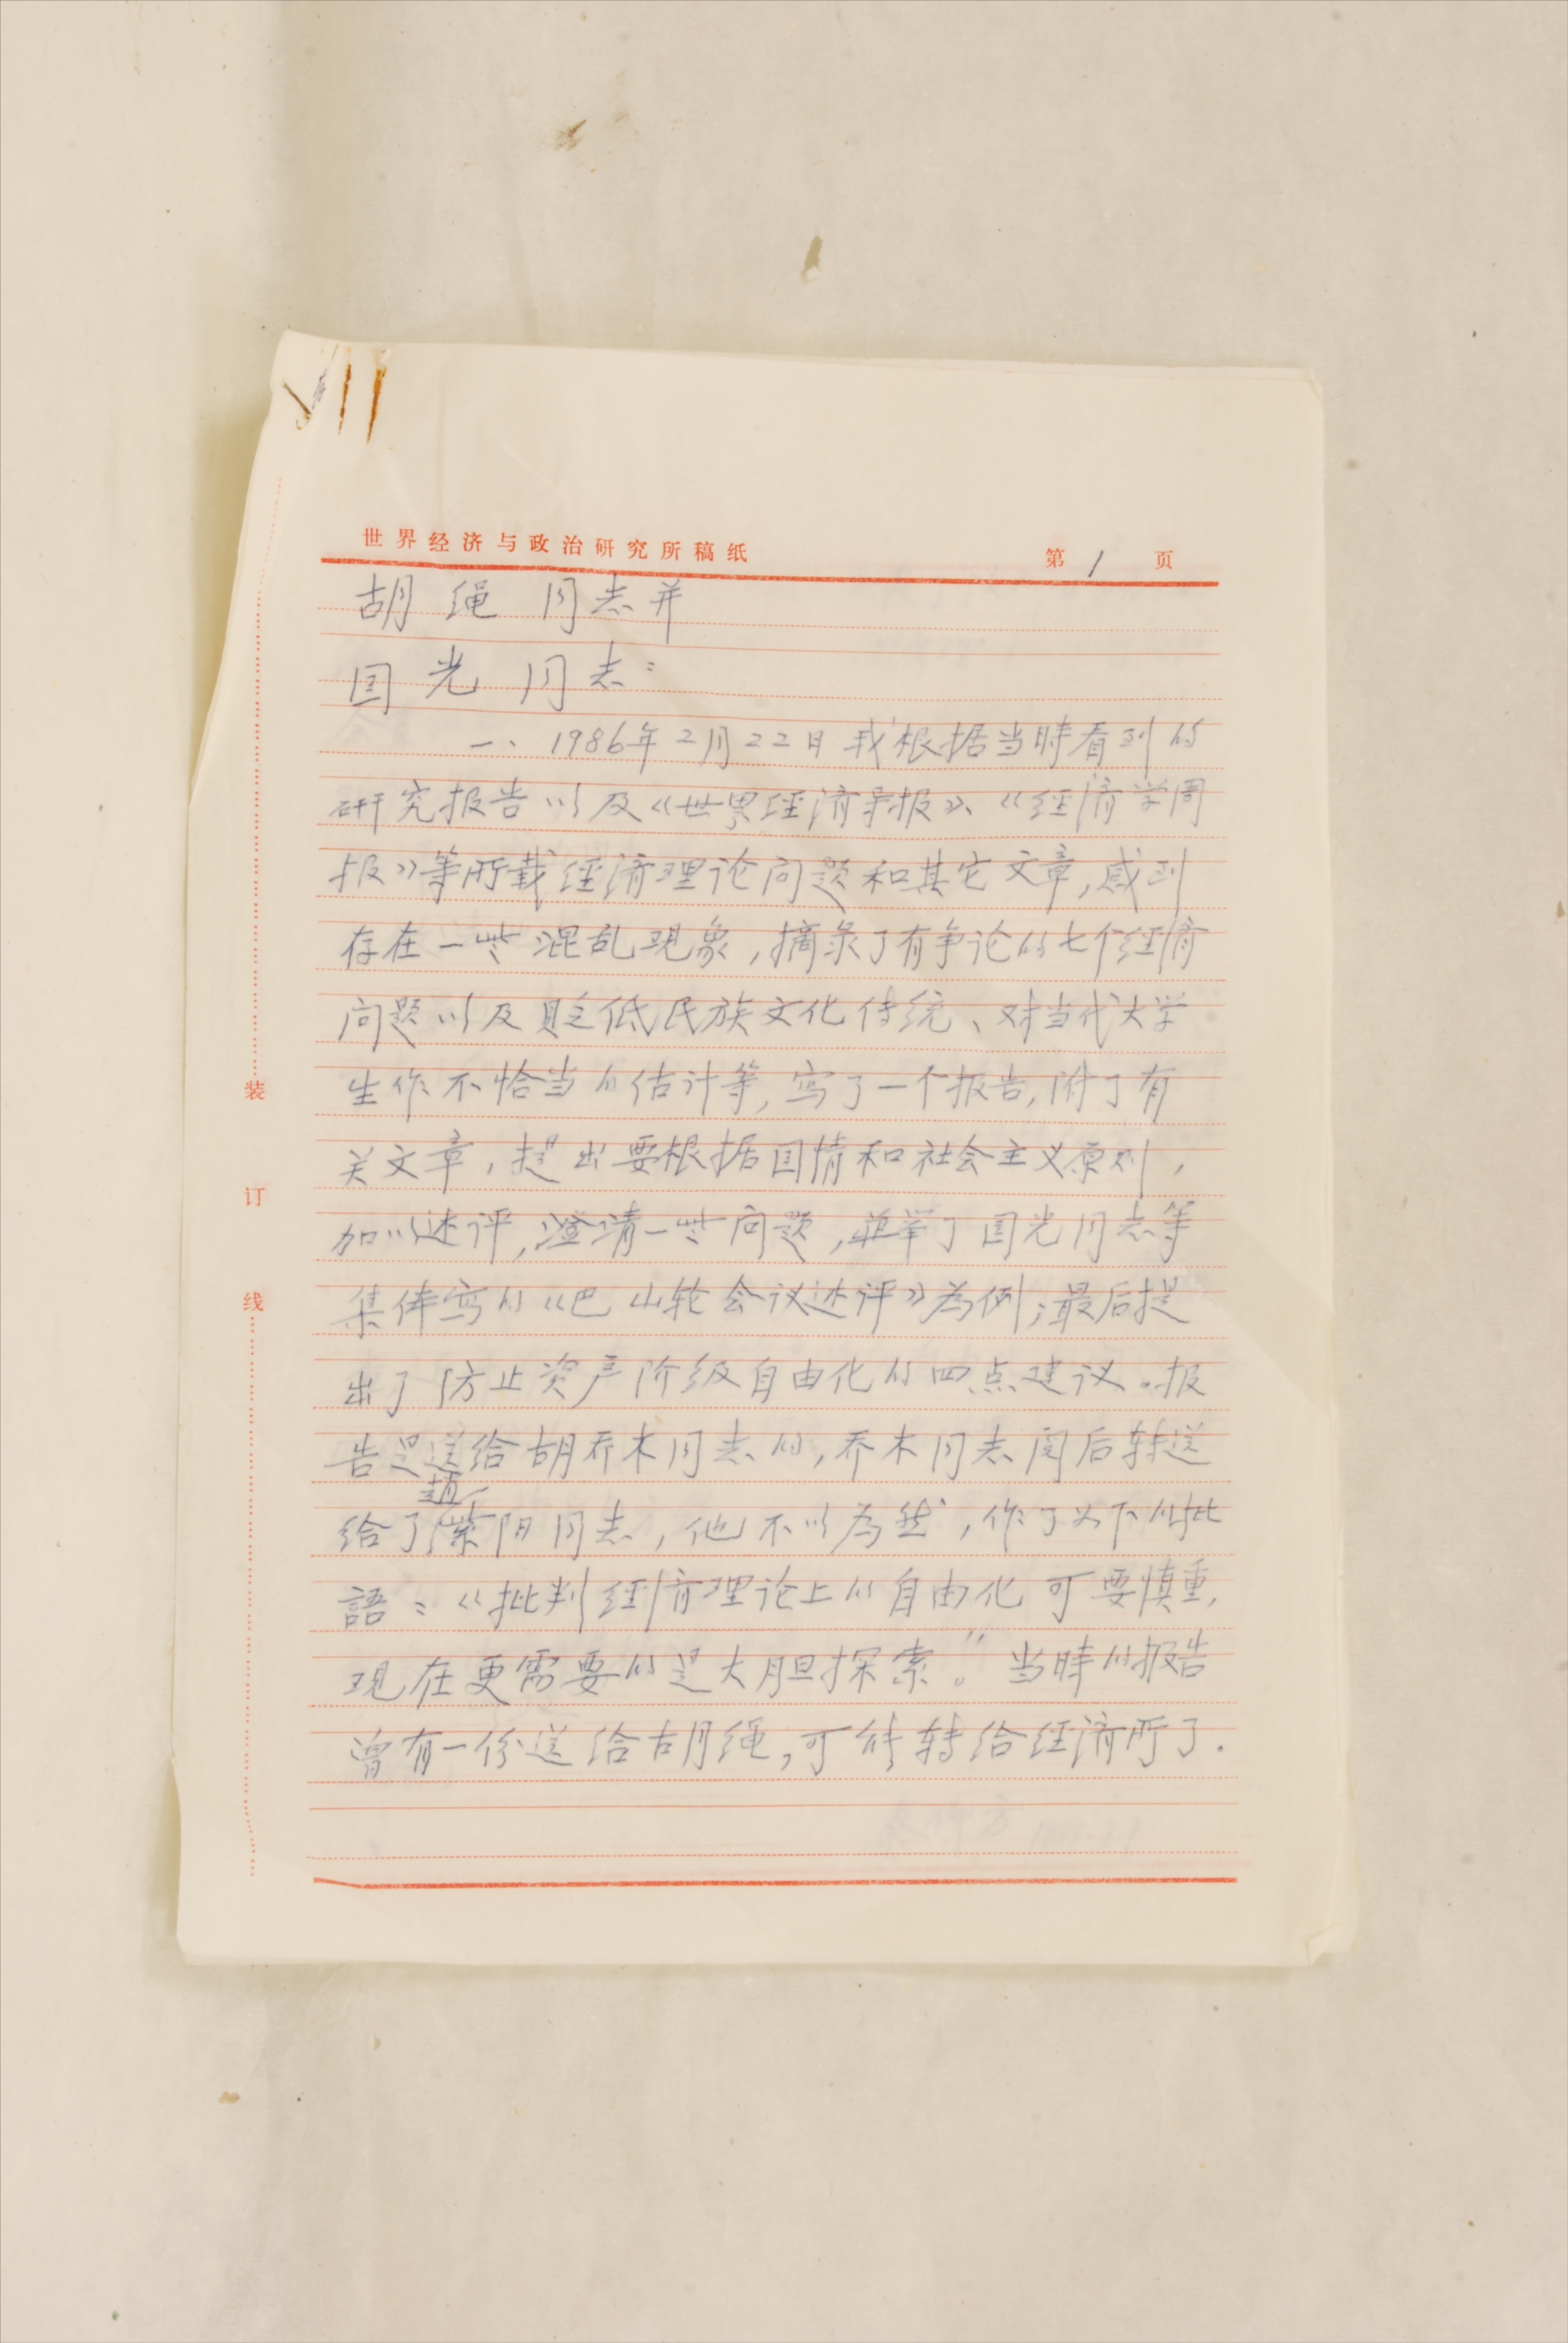 世界经济与政治研究所稿纸 第1页
胡绳同志并
国光同志：
一、1986年2月22日我根据当時看到的
研究报告以及《世界经济导报》、《经济学周
报》等所载经济理论问题和其它文章，感到
存在一些混乱现象，摘录了有争论的七个经济
问题以及贬低民族文化传统、对当代大学
生作不恰当的估计等，写了一个报告，附了有
关文章，提出要根据国情和社会主义原则，
加以述评，澄清一些问题，並举了国光同志等
集体写的《巴山轮会议述评》为例；最后提
出了防止资产阶级自由化的四点建议。报
告是送给胡乔木同志的，乔木同志阅后转送
给了赵紫阳同志，他不以为然，作了以下的批
語：“批判经济理论上的自由化可要慎重，
现在更需要的是大胆探索。”当時的报告
曾有一份送给胡绳，可能转给经济所了.
装
订
线